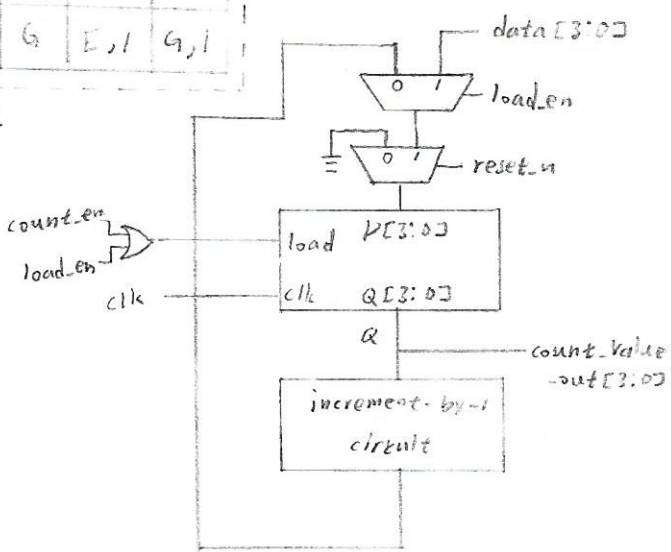 G E,1 G,1
data [3:0]
0 1
load_en
0 1
reset_n
count_en
load_en
load D[3:0]
clk
clk Q[3:0]
Q
count_value
_out[3:0]
increment-by-1
circuit